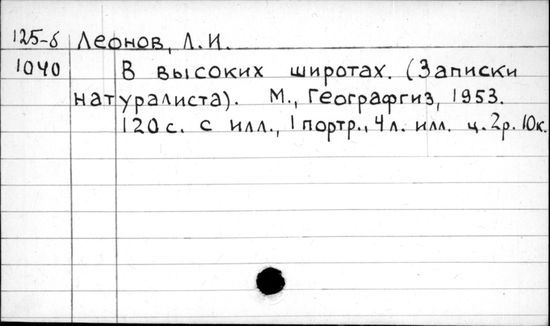 125-б Леонов, Л.И.
1040 В высоких широтах. (Записки
натуралиста). М., Географгиз, 1953.
120 с. с илл., 1 портр., 4 л. илл. ц. 2р. 10к.